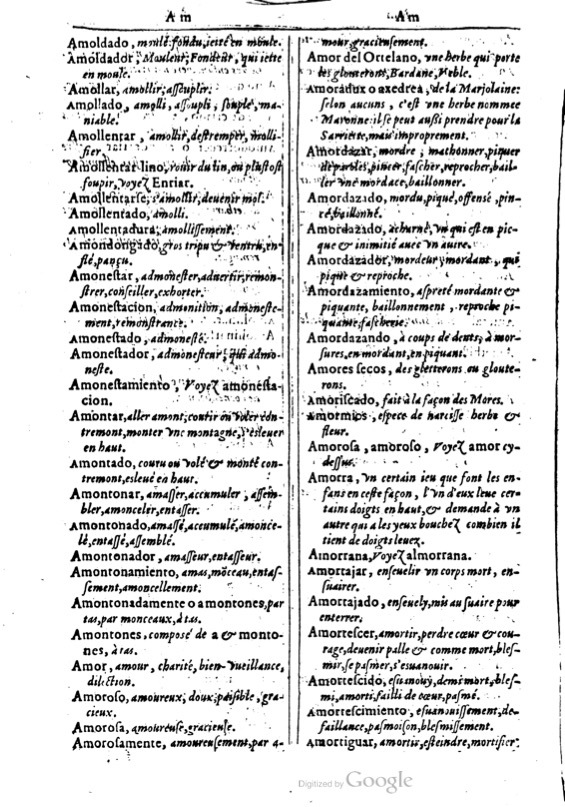 Am
Am
Amoldado, moulé, fondu, ietté en moule.
Amoldador, Mouleur, Fondeur, qui iette
en moule.
Amollar, amollir, assouplir.
Amollado, amolli, assoupli, souple, ma-
niable.
Amollentar, amollir, destremper, molli-
fier.
Amollentar lino, rouir du lin, ou plustost
soupir, voyez Enriar.
Amollentarse, s'amollir, deuenir mol.
Amollentado, amolli.
Amollentadura, amollissement.
Amondongado, gros tripu & ventru, en-
flé, pançu.
Amonestar, admonester, aduertir, remon-
strer, conseiller, exhorter.
Amonestacion, admonition, admoneste-
ment, remonstrance.
Amonestado, admonesté.
Amonestador, admonesteur, qui admo-
neste.
Amonestamiento, Voyez amonesta-
cion.
Amontar, aller amont, courir ou voler con-
tremont, monter vne montagne, s'esleuer
en haut.
Amontado, couru ou volé & monté con-
tremont, esleué en haut.
Amontonar, amasser, accumuler, assem-
bler, amonceler, entasser.
Amontonado, amassé, accumulé, amonce-
lé, entassé, assemblé.
Amontonador, amasseur, entasseur.
Amontonamiento, amas, mõceau, entas-
sement, amoncellement.
Amontonadamente o a montones, par
tas, par monceaux, à tas.
Amontones, composé de a & monto-
nes, à tas.
Amor, amour, charité, bien-vueillance,
dilection.
Amoroso, amoureux, doux, paisible, gra-
cieux.
Amorosa, amoureuse, gracieuse.
Amorosamente, amoureusement, par a-
mour, gracieusement.
Amor del Ortelano, vne herbe qui porte
des glouterons, Bardane, Yeble.
Amoradux o axedrea, de la Marjolaine:
selon aucuns, c'est vne herbe nommee
Maronne: il se peut aussi prendre pour la
Sarriette, mais improprement.
Amordazar, mordre, machonner, piquer
de paroles, pincer, fascher, reprocher, bail-
ler vne mordace, baillonner.
Amordazado, mordu, piqué, offensé, pin-
cé, baillonné.
Amordazado, acharné, vn qui est en pic-
que & inimitié auec vn autre.
Amordazador, mordeur, mordant, qui
pique & reproche.
Amordazamiento, aspreté mordante &
piquante, baillonnement, reproche pi-
quante, fascherie.
Amordazando, à coups de dents, à mor-
sures, en mordant, en piquant.
Amores secos, des gletterons ou gloute-
rons.
Amoriscado, fait à la façon des Mores.
Amormios, espece de narcisse herbe &
fleur.
Amorosa, amoroso, voyez amor cy-
dessus.
Amorra, vn certain ieu que font les en-
fans en ceste façon, l'vn d'eux leue cer-
tains doigts en haut, & demande à vn
autre qui a les yeux bouchez combien il
tient de doigts leuez.
Amorrana, Voyez almorrana.
Amortajar, enseuelir vn corps mort, en-
suairer.
Amortajado, enseuely, mis au suaire pour
enterrer.
Amortescer, amortir, perdre cœur & cou-
rage, deuenir palle & comme mort, bles-
mir, se pasmer, s'esuanouir.
Amortescido, esuanouy, demi mort, bles-
mi, amorti, failli de cœur, pasmé.
Amortescimiento, esuanouissement, de-
faillance, pasmoison, blesmissement.
Amortiguar, amortir, esteindre, mortifier
Digitized by Google